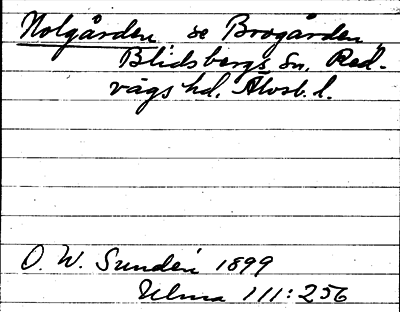 Nolgården se Brogården
Blidsbergs sn. Red-
vägs hd. Älvsb. l.
O. W. Sundén 1899
Ulma 111:256